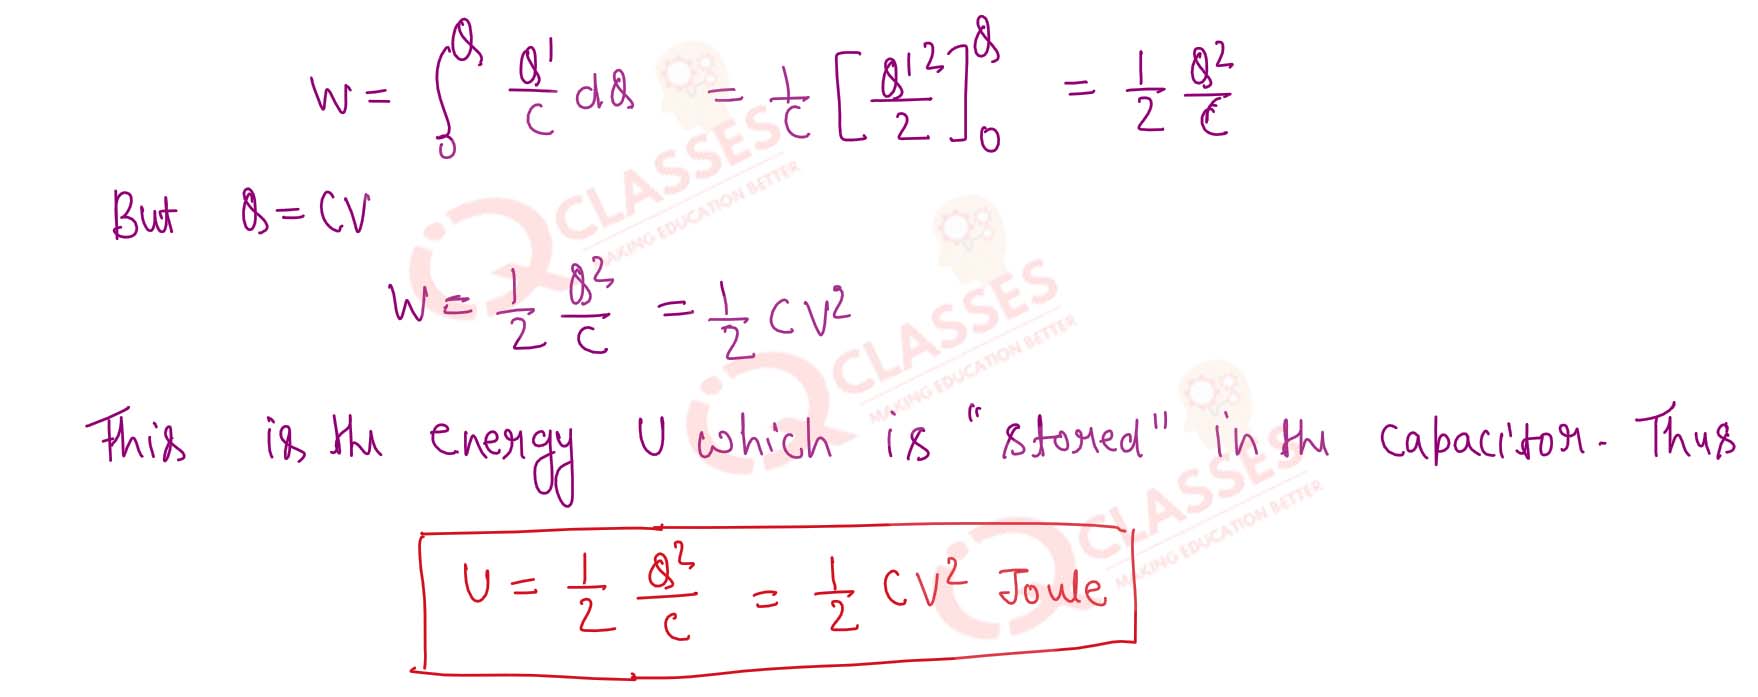 W = ∫₀^Q Q'/C dQ = 1/C [Q'²/2]₀^Q = 1/2 Q²/C
But Q = CV
W = 1/2 Q²/C = 1/2 CV²
This is the energy U which is "stored" in the capacitor. Thus
U = 1/2 Q²/C = 1/2 CV² Joule
iQ CLASSES
MAKING EDUCATION BETTER
iQ CLASSES
MAKING EDUCATION BETTER
iQ CLASSES
MAKING EDUCATION BETTER